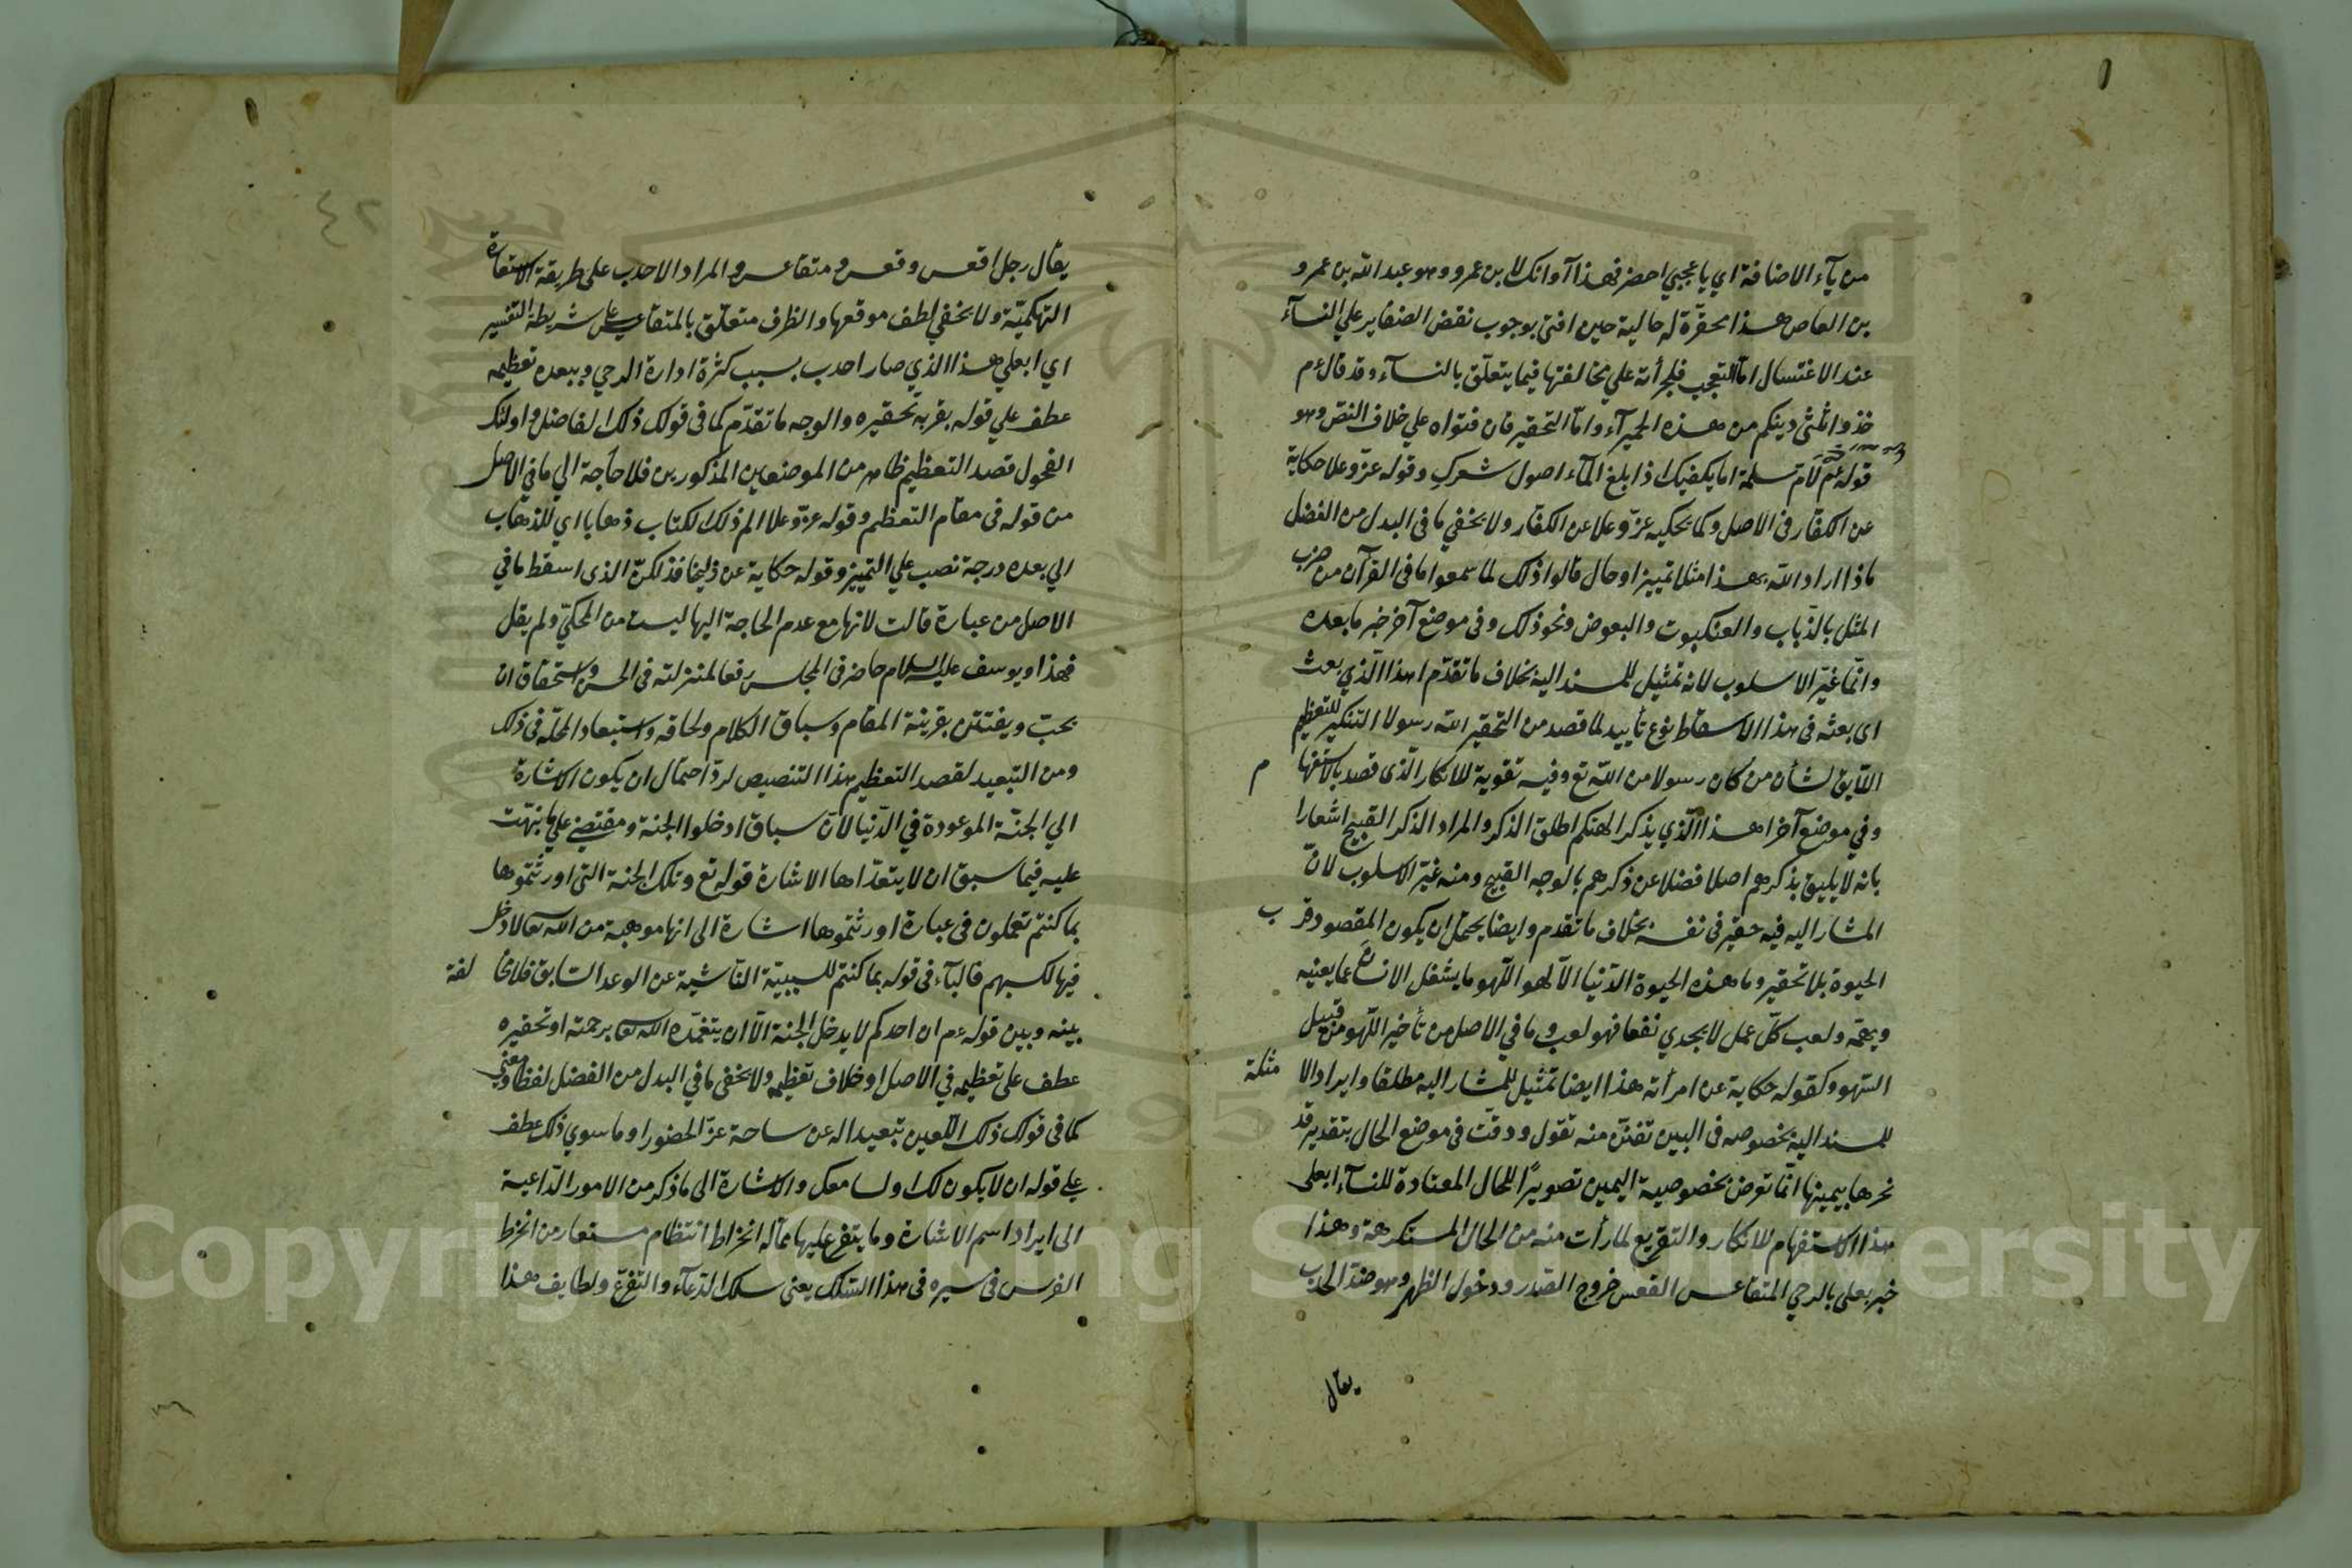 من يآء الاضافة اي يا عجبي احضر فهذا آوانك لابن عمرو وهو عبد الله بن عمرو
بن العاص هذا محقّرة له حالية حين افتى بوجوب نقض الضفاير علي النسآء
عند الاغتسال امّا التعجب فلجرأته علي مخالفتها فيما يتعلّق بالنسآء وقد قال عم
خذوا ثلثى دينكم من هذه الحميرآء وامّا التحقير فان فتواه علي خلاف النصّ وهو
قوله عم لامّ سلمة اما يكفيك اذا بلغ المآء اصول شعرك وقوله عزّ وعلا حكاية
عن الكفّار في الاصل وكما يحكيه عزّ وعلا عن الكفّار ولا يخفي ما في البدل من الفضل
ماذا اراد الله بهذا مثلا تمييز او حال قالوا ذلك لما سمعوا ما في القرآن من ضرب
المثل بالذّباب والعنكبوت والبعوض ونحو ذلك وفي موضع آخر خبر ما بعده
وانّما غيّر الاسلوب لانه تمثيل للمسند اليه بخلاف ما تقدّم اهذا الّذي بعث
اى بعثه في هذا الاسقاط نوع تأييد لما قصد من التحقير الله رسولا التنكير للتعظيم
اللّايق لشأن من كان رسولا من الله تع وفيه تقوية للانكار الّذى قصد بالاستفها م
وفي موضع آخر اهذا الّذي يذكر الهتكم اطلق الذكر والمراد الذكر القبيح اشعارا
بانه لا يليق بذكرهم اصلا فضلا عن ذكرهم بالوجه القبيح ومنه غيّر الاسلوب لانّ
المشار اليه فيه حقير في نفسه بخلاف ما تقدم وايضا يحتمل ان يكون المقصود قر ب
الحيوة بلا تحقير وما هذه الحيوة الدّنيا الّا لهو اللّهو ما يشغل الانسان عمّا يعنيه
ويهمّه ولعب كلّ عمل لا يجدي نفعا فهو لعب وما في الاصل من تأخير اللّهو من قبيل
السّهو وكقوله حكاية عن امرأته هذا ايضا تمثيل للمشار اليه مطلقا وايراد الا مثلة
للمسند اليه بخصوصه في البين تفنّن منه تقول ودقّت في موضع الحال بتقدير قد
نحرها بيمينها انّما تعرض بخصوصية اليمين تصويرًا للحال المعتادة للنسآء ابعلى
هذا الاستفهام للانكار والتقريع لما رأت منه من الحال المستكرهة وهذا
خبر بعلى بالرحي المتقاعس القعس خروج الصّدر ودخول الظهر وهو ضدّ الحدب
يقال
يقال رجل اقعس وقعس ومتقاعس والمراد الاحدب على طريقة الاستعارة
التهكميّة ولا يخفي لطف موقعها والظرف متعلّق بالمتقاعس على شريطة التفسير
اي ابعلي هذا الذي صار احدب بسبب كثرة ادارة الرحي وببعده تعظيمه
عطف علي قوله بقربه تحقيره والوجه ما تقدّم كما في قولك ذلك الفاضل واولئك
الفحول قصد التعظيم ظاهر من الموضعين المذكورين فلا حاجة الي ما في الاصل
من قوله في مقام التعظيم وقوله عزّ وعلا الم ذلك الكتاب ذهابا اي للذهاب
الي بعده درجة نصب علي التمييز وقوله حكاية عن زليخا فذلكنّ الذى اسقط ما في
الاصل من عبارة قالت لانها مع عدم الحاجة اليها ليست من المحكيّ ولم يقل
فهذا ويوسف عليه السلام حاضر في المجلس رفعا لمنزلته في الحسن واستحقاق ان
يحبّ ويفتتن بقرينة المقام وسباق الكلام ولحاقه واستبعاد المحلّه في ذلك
ومن التبعيد لقصد التعظيم هذا التنصيص لردّ احتمال ان يكون الاشارة
الي الجنّة الموعودة في الدّنيا لانّ سباق ادخلوا الجنة ومقتضى علي ما نبّهت
عليه فيما سبق ان لا يتعدّاها الاشارة قوله تع وتلك الجنة التى اورثتموها
بما كنتم تعملون في عبارة اورثتموها اشارة الى انها موهبة من الله تعالى لا دخل
فيها لكسبهم فالبآء في قوله بما كنتم للسببيّة النّاشية عن الوعد السّابق فلا مخا لفة
بينه وبين قوله عم ان احدكم لا يدخل الجنة الّا ان يتغمّده الله تعالى برحمته او تحقيره
عطف على تعظيمه في الاصل او خلاف تعظيمه ولا يخفى ما في البدل من الفضل لفظا ومعنى
كما في قولك ذلك اللّعين تبعيدا له عن ساحة عزّ الحضور او ما سوي ذلك عطف
علي قوله ان لا يكون لك او لسامعك والاشارة الى ما ذكر من الامور الدّاعية
الى ايراد اسم الاشارة وما يتفرع عليها ممّا له انخراط انتظام مستعار من انخرط
الفرس في سيره في هذا السّلك يعنى سلك الدّعآء والتّفرّع ولطايف هذا